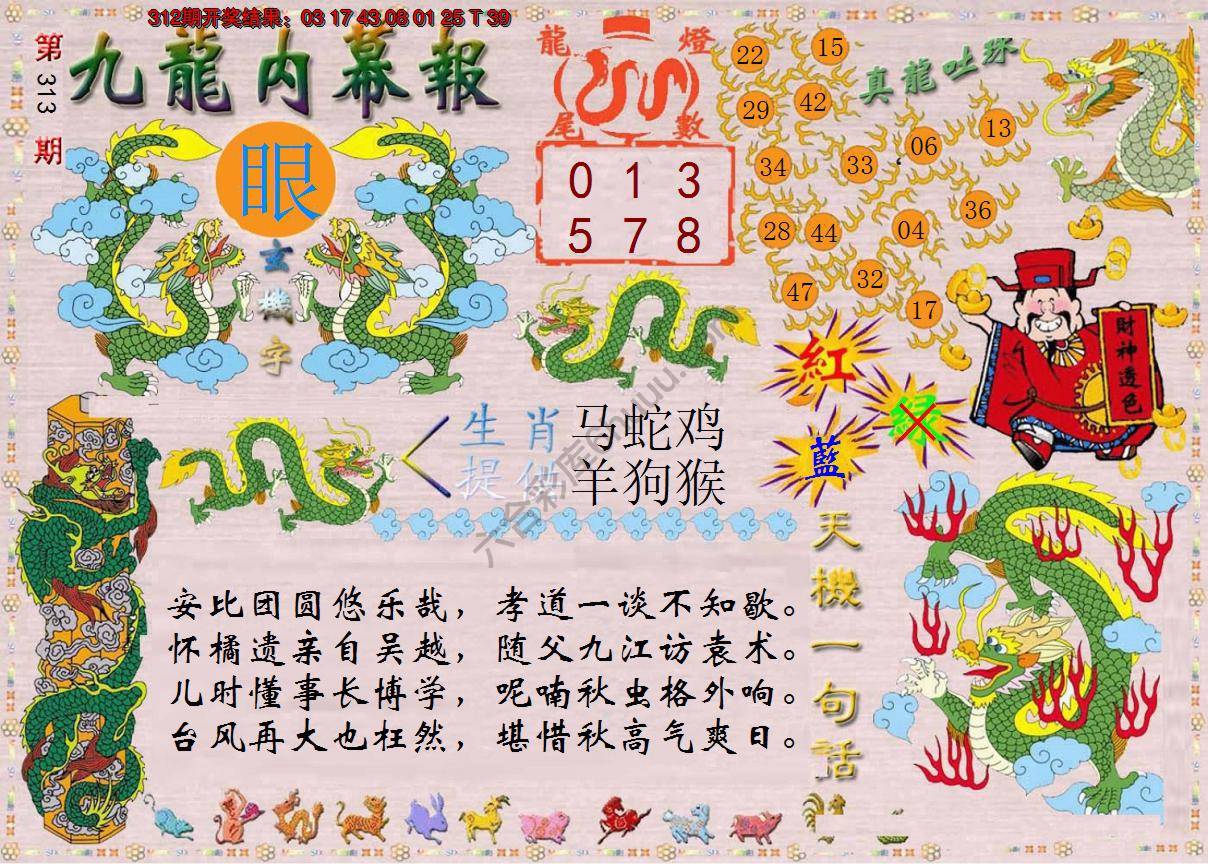 312期开奖结果：03 17 43 08 01 25 T 39
第313期
九龍内幕報
眼
玄機字
龍燈
尾數
0 1 3
5 7 8
真龍吐珠
22 15
29 42
34 33 06 13
28 44 04 36
47 32 17
財神透色
紅
綠
藍
生肖 马蛇鸡
提供 羊狗猴
天機一句话
安比团圆悠乐哉，孝道一谈不知歇。
怀橘遗亲自吴越，随父九江访袁术。
儿时懂事长博学，呢喃秋虫格外响。
台风再大也枉然，堪惜秋高气爽日。